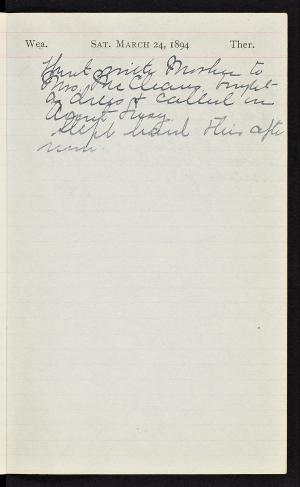 Wea. SAT. MARCH 24, 1894 Ther.
Went with Mother to
Mrs. McCleans. bought
a dress & called on
Aunt
slept hard this after
noon.